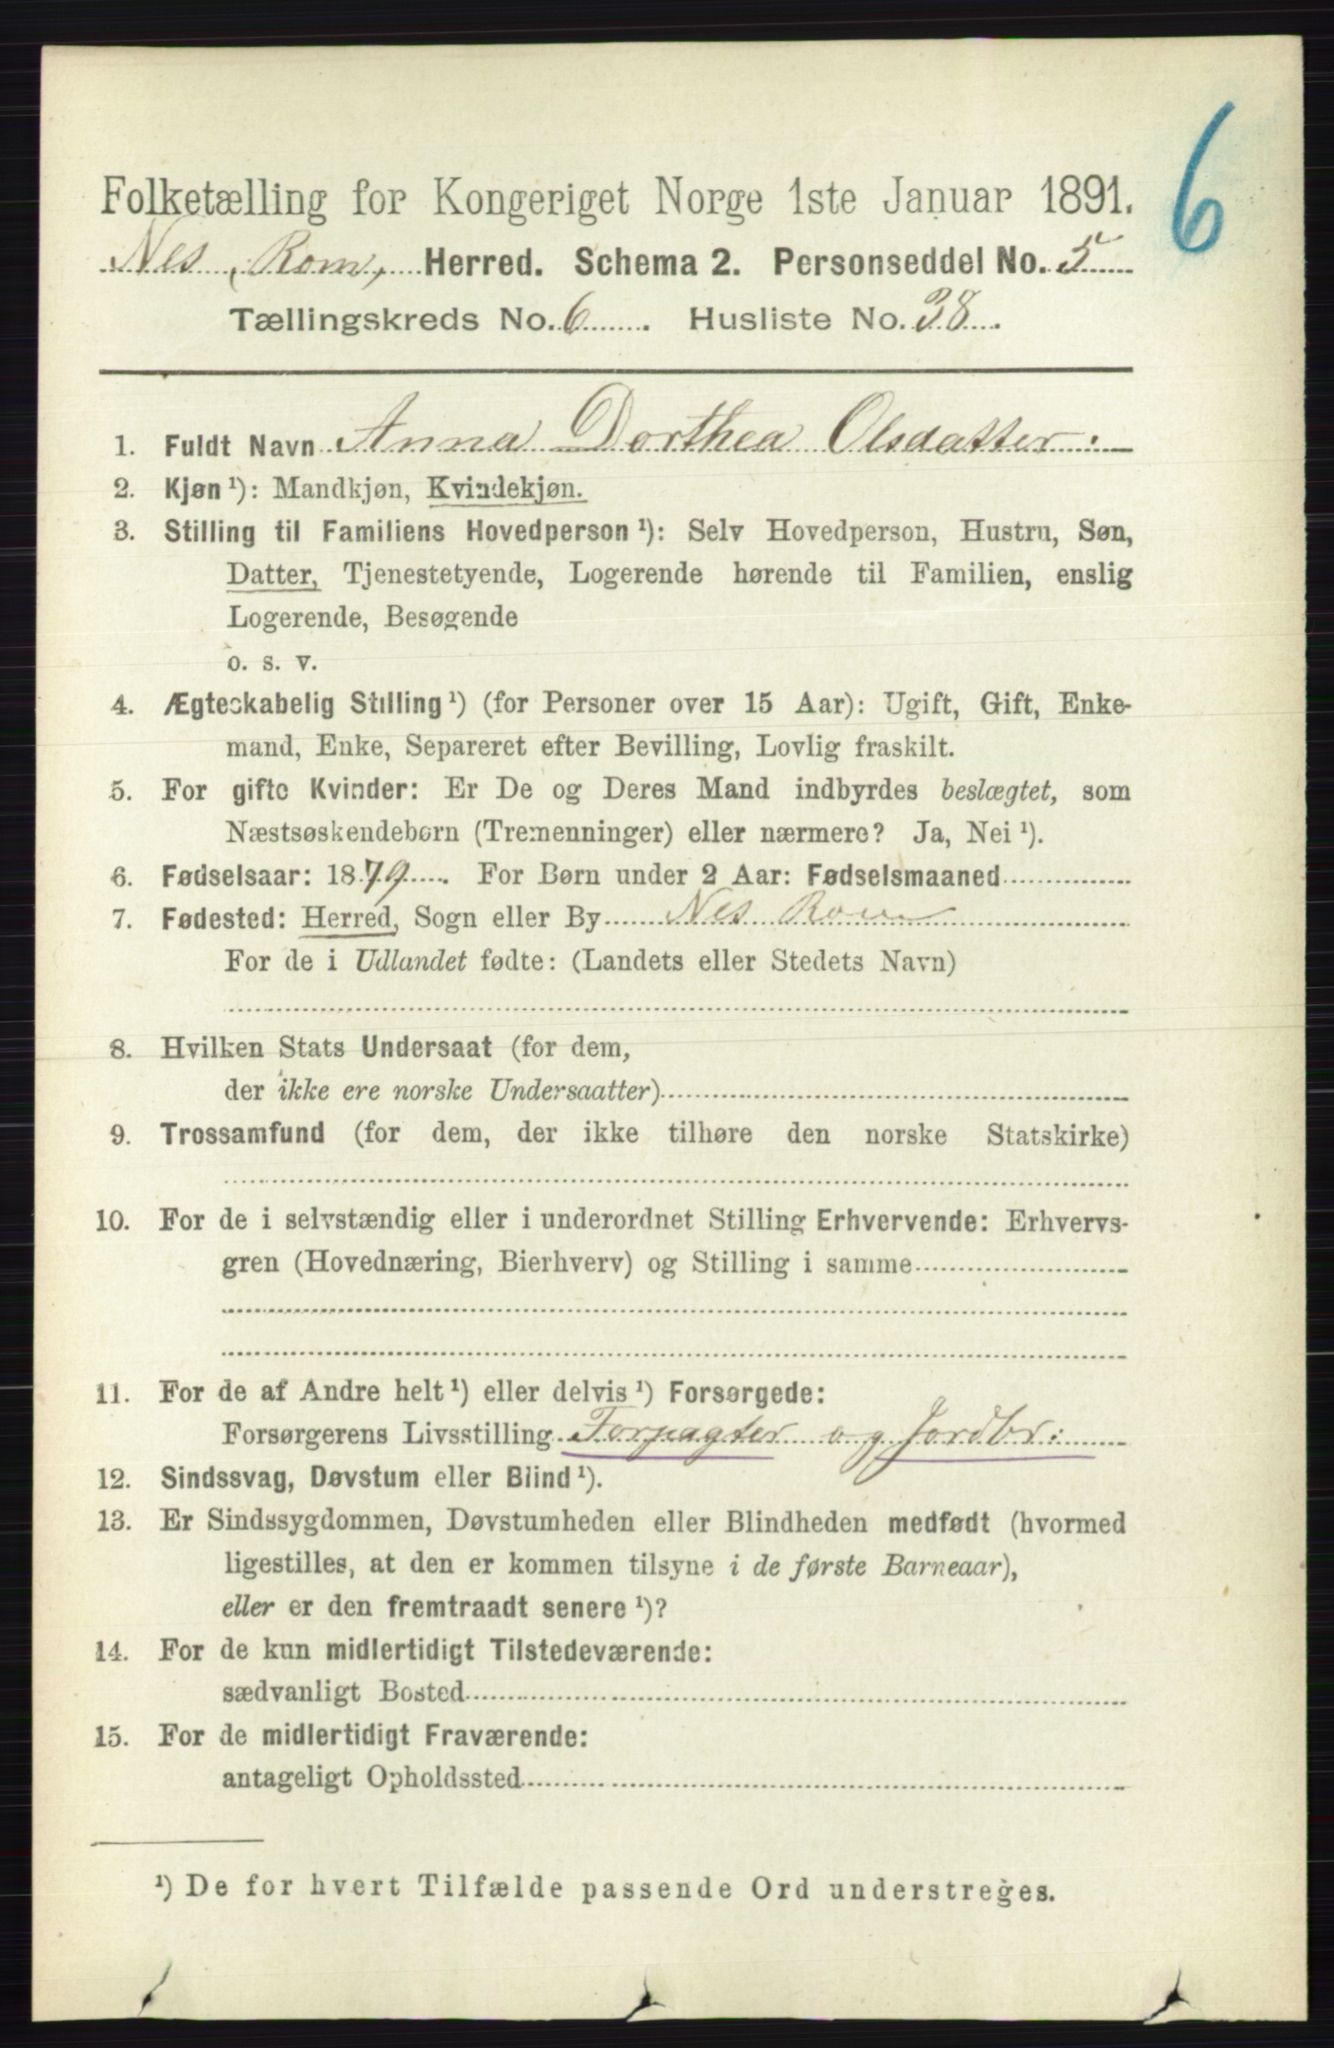 6
Folketælling for Kongeriget Norge 1ste Januar 1891.
Nes, Rom, Herred. Schema 2. Personseddel No. 5
Tællingskreds No. 6. Husliste No. 38.
1. Fuldt Navn Anna Dorthea Olsdatter:
2. Kjøn ¹): Mandkjøn, Kvindekjøn.
3. Stilling til Familiens Hovedperson ¹): Selv Hovedperson, Hustru, Søn,
Datter, Tjenestetyende, Logerende hørende til Familien, enslig
Logerende, Besøgende
o. s. v.
4. Ægteskabelig Stilling ¹) (for Personer over 15 Aar): Ugift, Gift, Enke-
mand, Enke, Separeret efter Bevilling, Lovlig fraskilt.
5. For gifte Kvinder: Er De og Deres Mand indbyrdes beslægtet, som
Næstsøskendebørn (Tremenninger) eller nærmere? Ja, Nei ¹).
6. Fødselsaar: 1879. For Børn under 2 Aar: Fødselsmaaned
7. Fødested: Herred, Sogn eller By Nes Rom
For de i Udlandet fødte: (Landets eller Stedets Navn)
8. Hvilken Stats Undersaat (for dem,
der ikke ere norske Undersaatter)
9. Trossamfund (for dem, der ikke tilhøre den norske Statskirke)
10. For de i selvstændig eller i underordnet Stilling Erhvervende: Erhvervs-
gren (Hovednæring, Bierhverv) og Stilling i samme
11. For de af Andre helt ¹) eller delvis ¹) Forsørgede:
Forsørgerens Livsstilling Forpagter og Jordbr:
12. Sindssvag, Døvstum eller Blind ¹).
13. Er Sindssygdommen, Døvstumheden eller Blindheden medfødt (hvormed
ligestilles, at den er kommen tilsyne i de første Barneaar),
eller er den fremtraadt senere ¹)?
14. For de kun midlertidigt Tilstedeværende:
sædvanligt Bosted
15. For de midlertidigt Fraværende:
antageligt Opholdssted
¹) De for hvert Tilfælde passende Ord understreges.